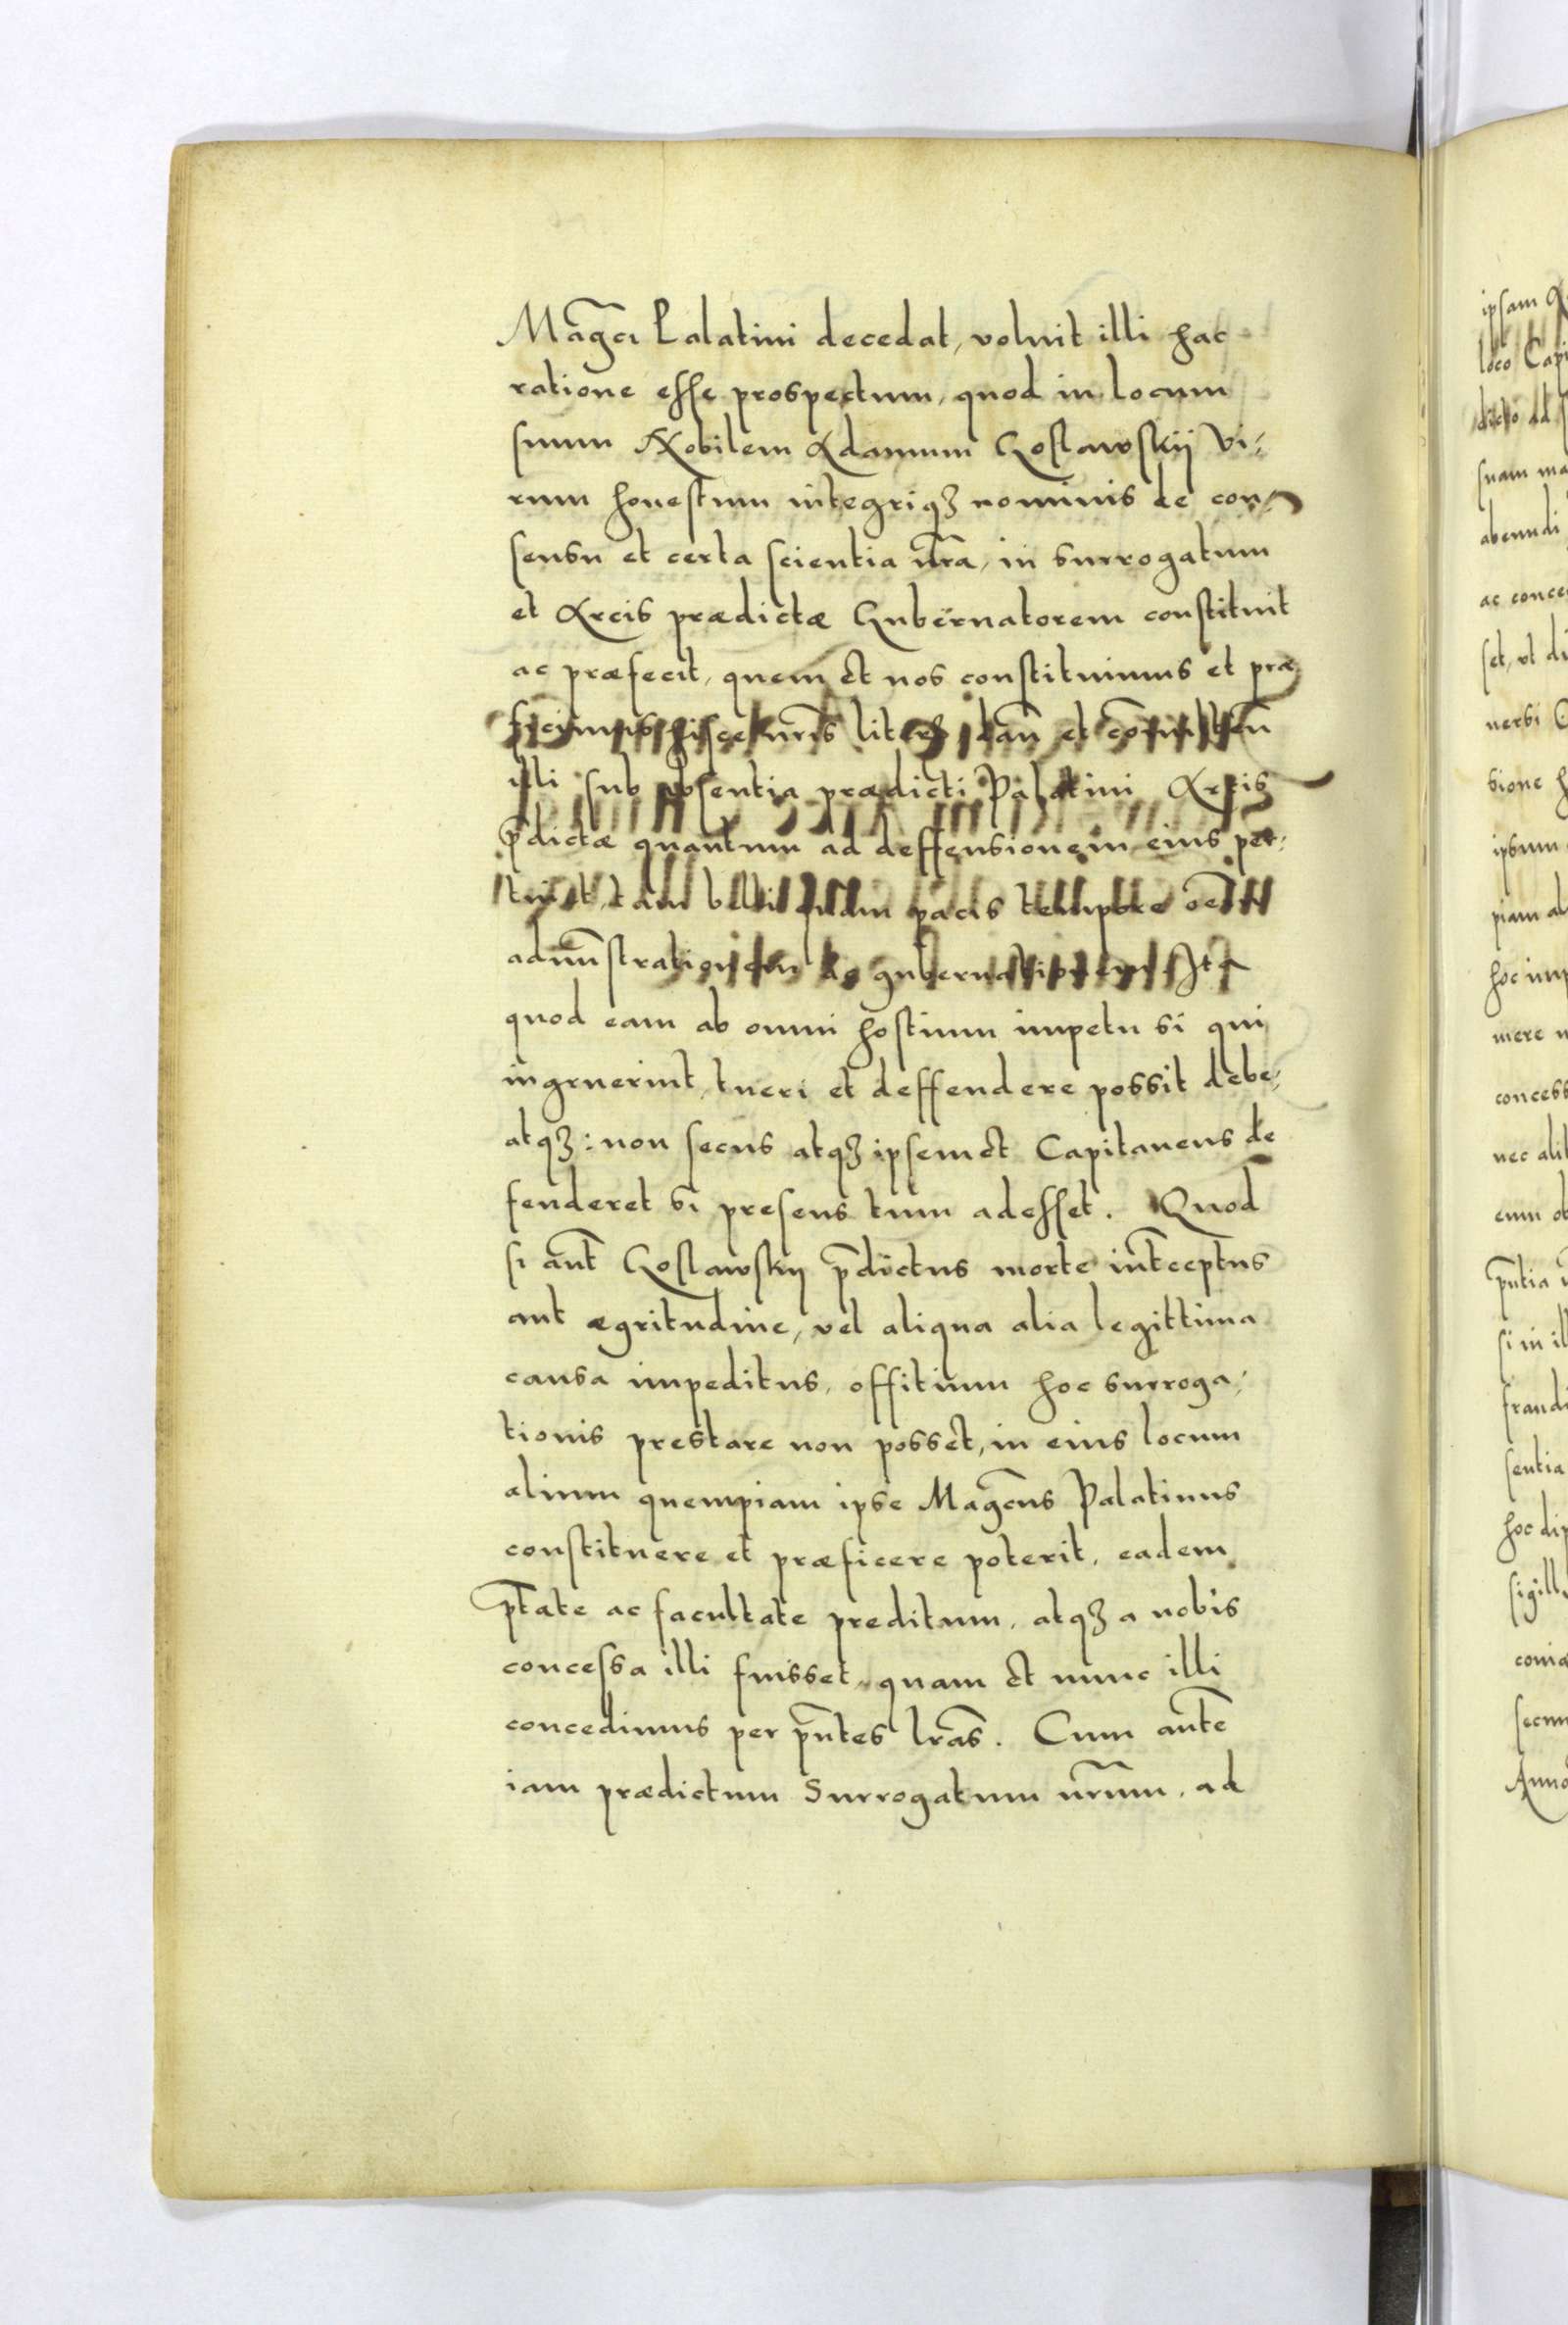 Magci Palatini decedat, voluit illi hac
ratione esse prospectum, quod in locum
suum Nobilem Adamum Goslawskij vi-
rum honestum integriqꝫ nominis de con-
sensu et certa scientia nra, in surrogatum
et Arcis prædictæ Gubernatorem constituit
ac præfecit, quem et nos constituimus et præ
ficimus hisce nris litꝫ dan et comitten
illi sub absentia prædicti Palatini Arcis
pdictæ quantum ad deffensionem eius per-
tinet, tam belli quam pacis tempore oem
adminstrationem ac gubernationem Ita
quod eam ab omni hostium impetu si qui
ingruerint, tueri et deffendere possit debe-
atqꝫ: non secus atqꝫ ipsemet Capitaneus de
fenderet si presens tum adesset. Quod
si aut Goslawskij pdictus morte intceptus
aut ægritudine, vel aliqua alia legittima
causa impeditus, offitium hoc surroga-
tionis prestare non posset, in eius locum
alium quempiam ipse Magcus Palatinus
constituere et præficere poterit, eadem
ptate ac facultate preditum, atqꝫ a nobis
concessa illi fuisset, quam et nunc illi
concedimus per pntes lras. Cum aute
iam prædictum Surrogatum nrum, ad
ipsam
loco Capi
dicto ad
suam ma
abeundi
ac conce
set, ut di
uersi
sione h
ipsum
piam al
hoc imp
mere n
concess
nec alit
eum ob
pntia
si in il
fraudi
sentia
hoc dip
sigill
conia
secun
Anno